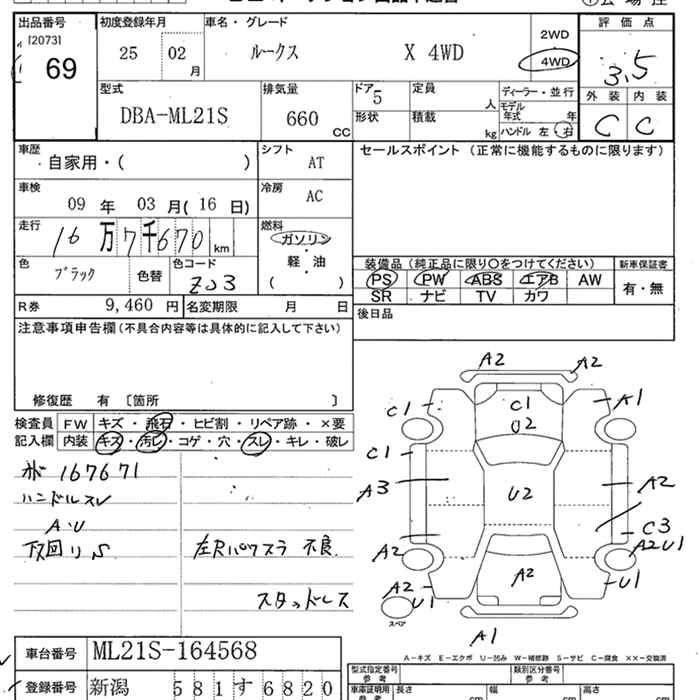 出品番号 初度登録年月 車名・グレード 評価点
[2073]
69
25 02 月
ルークス X 4WD
2WD
4WD
3.5
外装 内装
C C
型式 排気量 ドア 定員 ディーラー・並行
DBA-ML21S 660 CC 5 人
モデル年式 年
形状 積載 kg ハンドル 左・右
車歴 自家用・( ) シフト AT
セールスポイント（正常に機能するものに限ります）
車検 09 年 03 月( 16 日) 冷房 AC
走行 16 万 7 千 670 km
燃料 ガソリン
軽・油
( )
色 ブラック 色替 色コード Z03
装備品（純正品に限り○をつけてください） 新車保証書
PS PW ABS エアB AW
SR ナビ TV カワ
有・無
R券 9,460 円 名変期限 月 日
後日品
注意事項申告欄（不具合内容等は具体的に記入して下さい）
修復歴 有 〔箇所 〕
検査員 FW キズ・飛石・ヒビ割・リペア跡・×要
記入欄 内装 キズ・汚レ・コゲ・穴・スレ・キレ・破レ
167671
ハンドルスレ
A・U
下回り S
左Rパワスラ 不良
スタッドレス
A2 A2
C1 A1
C1
U2
C1
A3 U2 A2
C3
A2 A2U1
A2
A2 U1
U1
スペア
A1
A-キズ E-エクボ U-凹み W-補修跡 S-サビ C-腐食 ××-交換済
車台番号 ML21S-164568
型式指定番号 参考 類別区分番号 参考
登録番号 新潟 581す6820
車庫証明用 参考 長さ cm 幅 cm 高さ cm